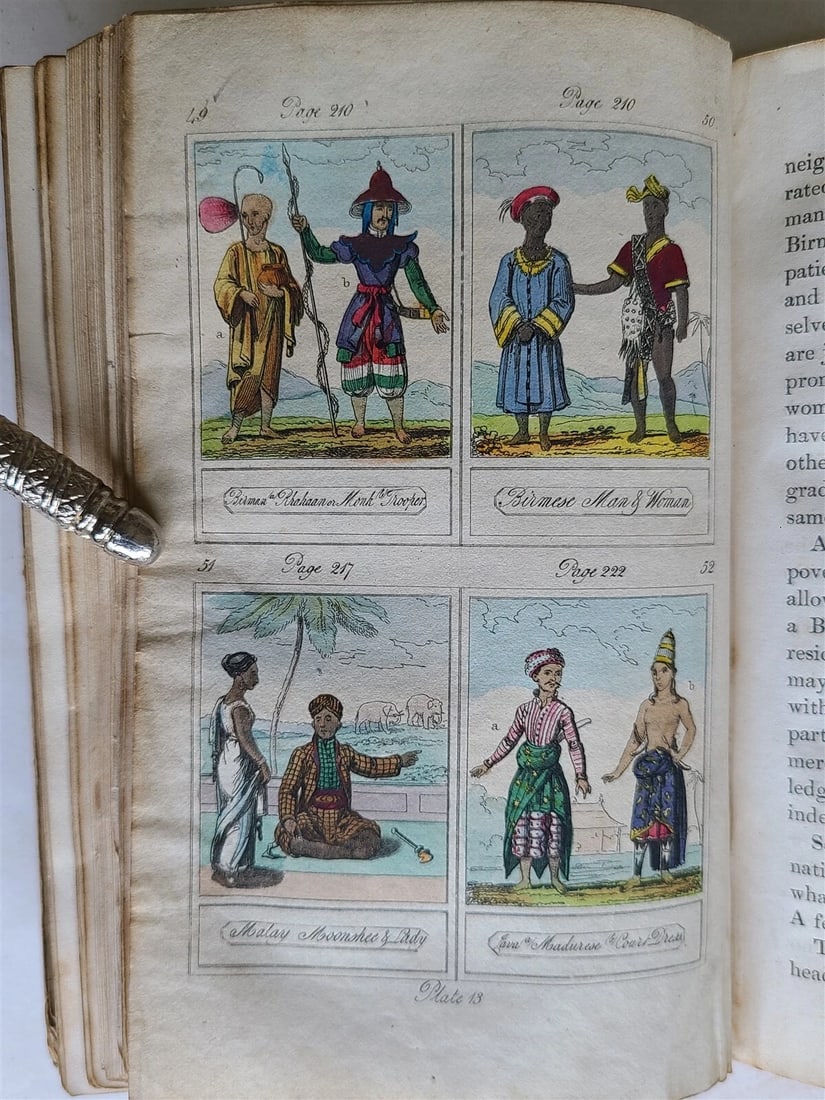 49 Page 210 Page 210 50
a b
Birman a Rhahaan or Monk b Trooper
Birmese Man & Woman
51 Page 217 Page 222 52
a b
Malay Moonshee & Lady
Java a Madurese b Court Dress
Plate 13
neig
rated
man
Birn
patie
and
selve
are j
pron
wom
have
othe
grad
sam
A
pove
allov
a B
resid
may
with
part
mer
ledg
inde
S
nati
wha
A fe
T
head